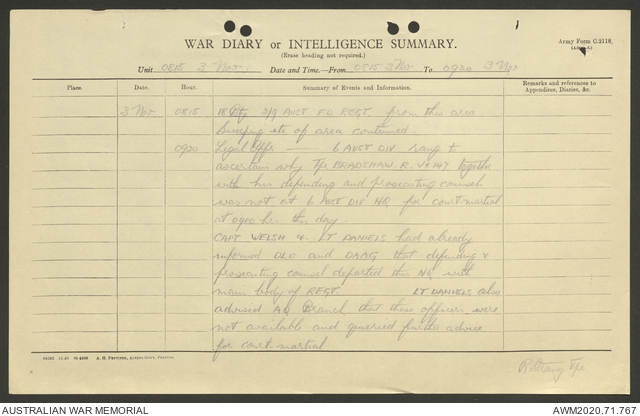 WAR DIARY or INTELLIGENCE SUMMARY.
(Erase heading not required.)
Army Form C.2118,
Unit 0815 3 Nov. Date and Time.—From 0815 3 Nov To 0920 3 Nov
Place. Date. Hour. Summary of Events and Information. Remarks and references to Appendices, Diaries, &c.
3 Nov 0815 18 Bty 2/9 AUST FD REGT from this area
Sweeping etc of area continued.
0920 Legal Offr — 6 AUST DIV rang to
ascertain why Tpr BRADSHAW R. together
with his defending and prosecuting counsel
was not at 6 AUST DIV HQ for court martial
at 0900 hrs this day.
CAPT WELSH & LT DANIELS had already
informed DLO and DAAG that defending &
prosecuting counsel departed this HQ with
main body of REGT. LT DANIELS also
advised AQ Branch that these officers were
not available and queried further advice
for court-martial
A. H. PETTIFER, ACTING GOVT. PRINTER.
AUSTRALIAN WAR MEMORIAL
AWM2020.71.767